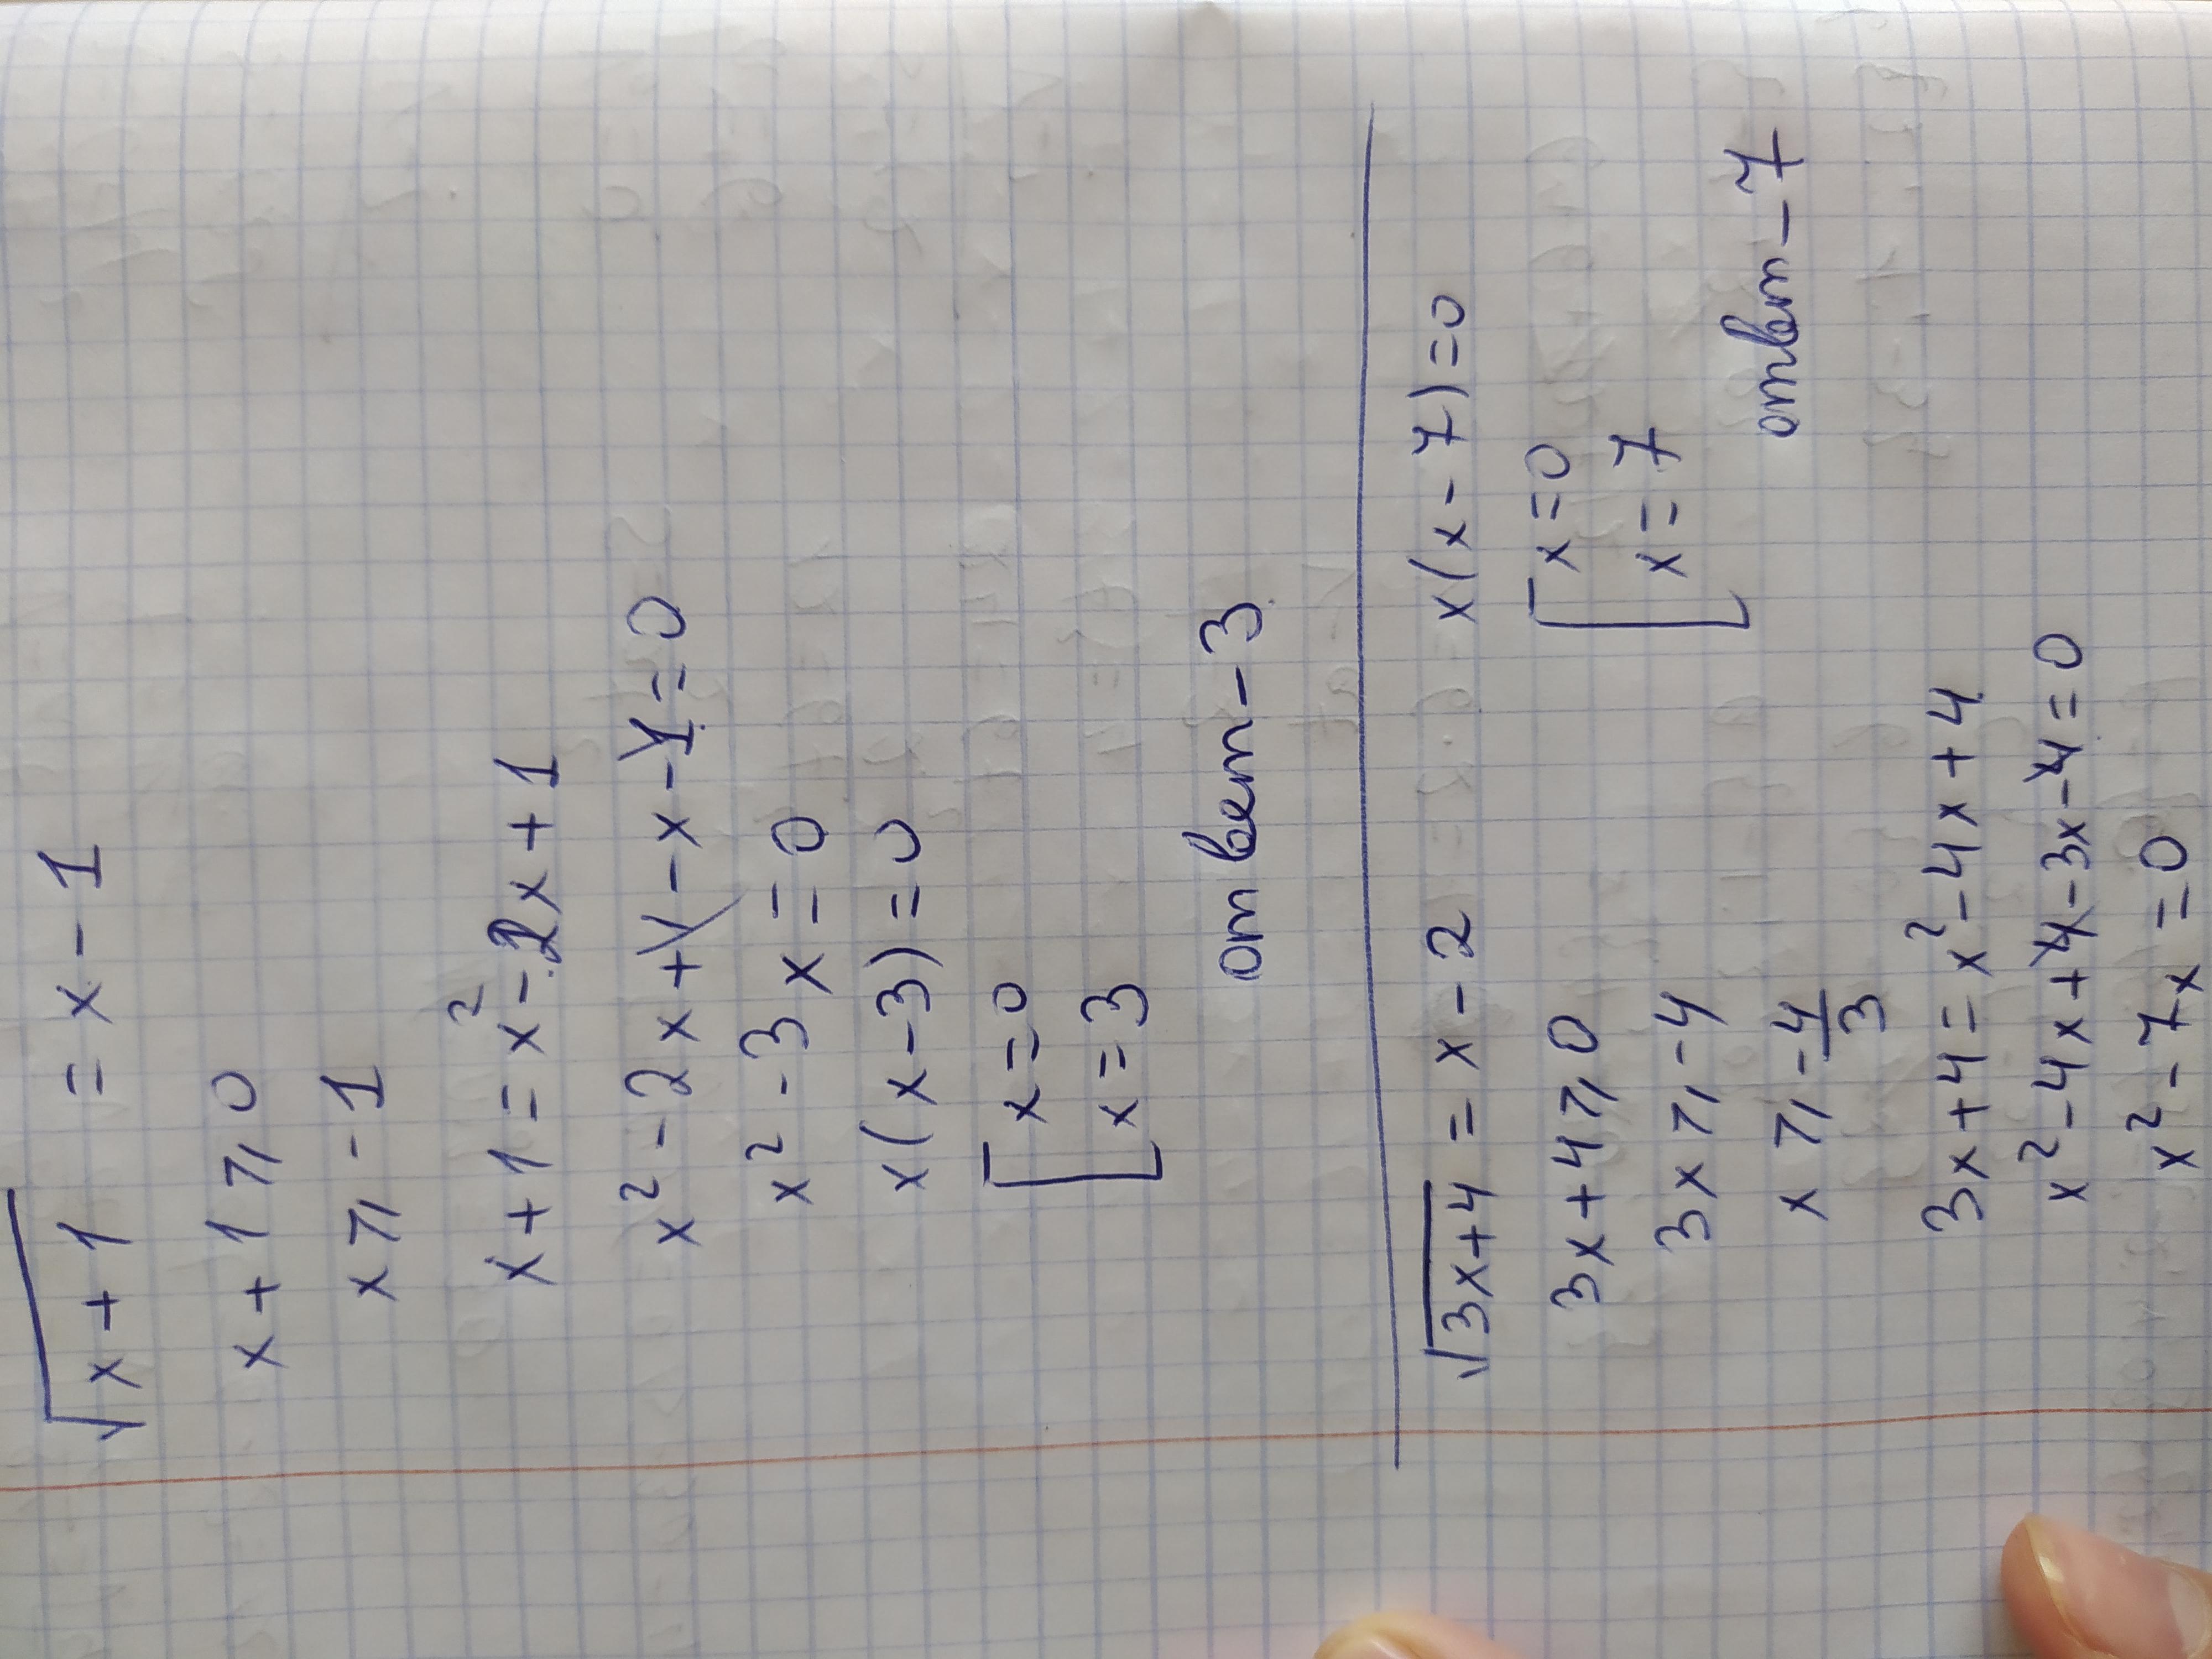 √x+1 = x-1
x+1 ⩾ 0
x ⩾ -1
x+1 = x²-2x+1
x²-2x+1-x-1=0
x²-3x=0
x(x-3)=0
[x=0
[x=3
ответ-3
√3x+4 = x-2
3x+4 ⩾ 0
3x ⩾ -4
x ⩾ -4/3
3x+4=x²-4x+4
x²-4x+4-3x-4=0
x²-7x=0
x(x-7)=0
[x=0
[x=7
ответ-7